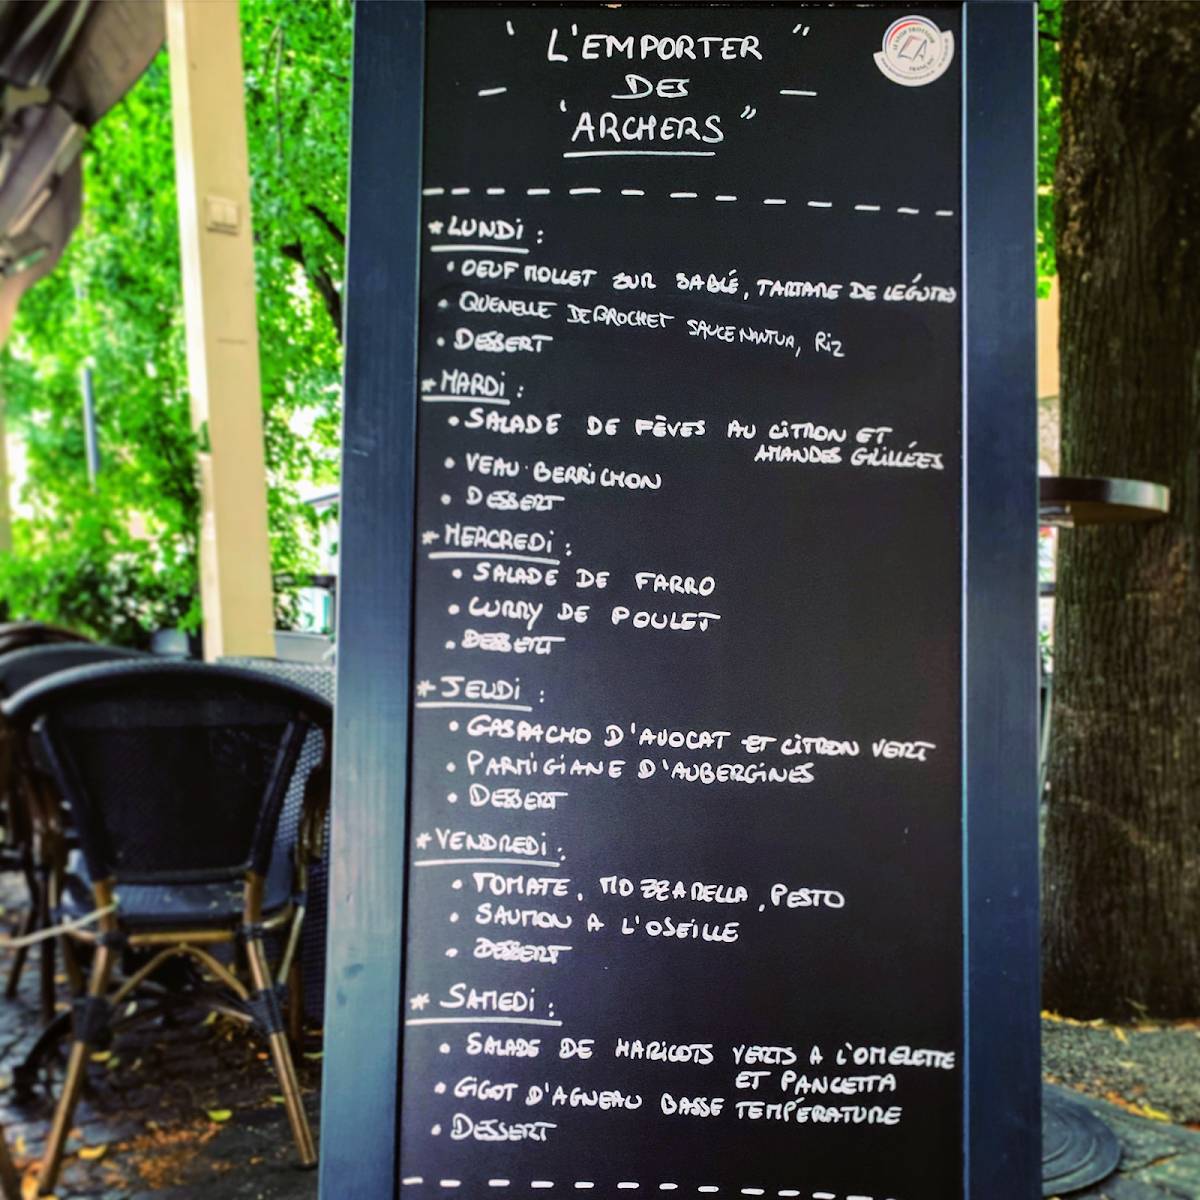 " L'EMPORTER "
— DES —
"ARCHERS"
* LUNDI :
• OEUF MOLLET SUR SABLÉ, TARTARE DE LÉGUMES
• QUENELLE DE BROCHET SAUCE NANTUA, RIZ
• DESSERT
* MARDI :
• SALADE DE FÈVES AU CITRON ET
AMANDES GRILLÉES
• VEAU BERRICHON
• DESSERT
* MERCREDI :
• SALADE DE FARRO
• CURRY DE POULET
• DESSERT
* JEUDI :
• GASPACHO D'AVOCAT ET CITRON VERT
• PARMIGIANE D'AUBERGINES
• DESSERT
* VENDREDI :
• TOMATE, MOZZARELLA, PESTO
• SAUMON A L'OSEILLE
• DESSERT
* SAMEDI :
• SALADE DE HARICOTS VERTS A L'OMELETTE
ET PANCETTA
• GIGOT D'AGNEAU BASSE TEMPÉRATURE
• DESSERT